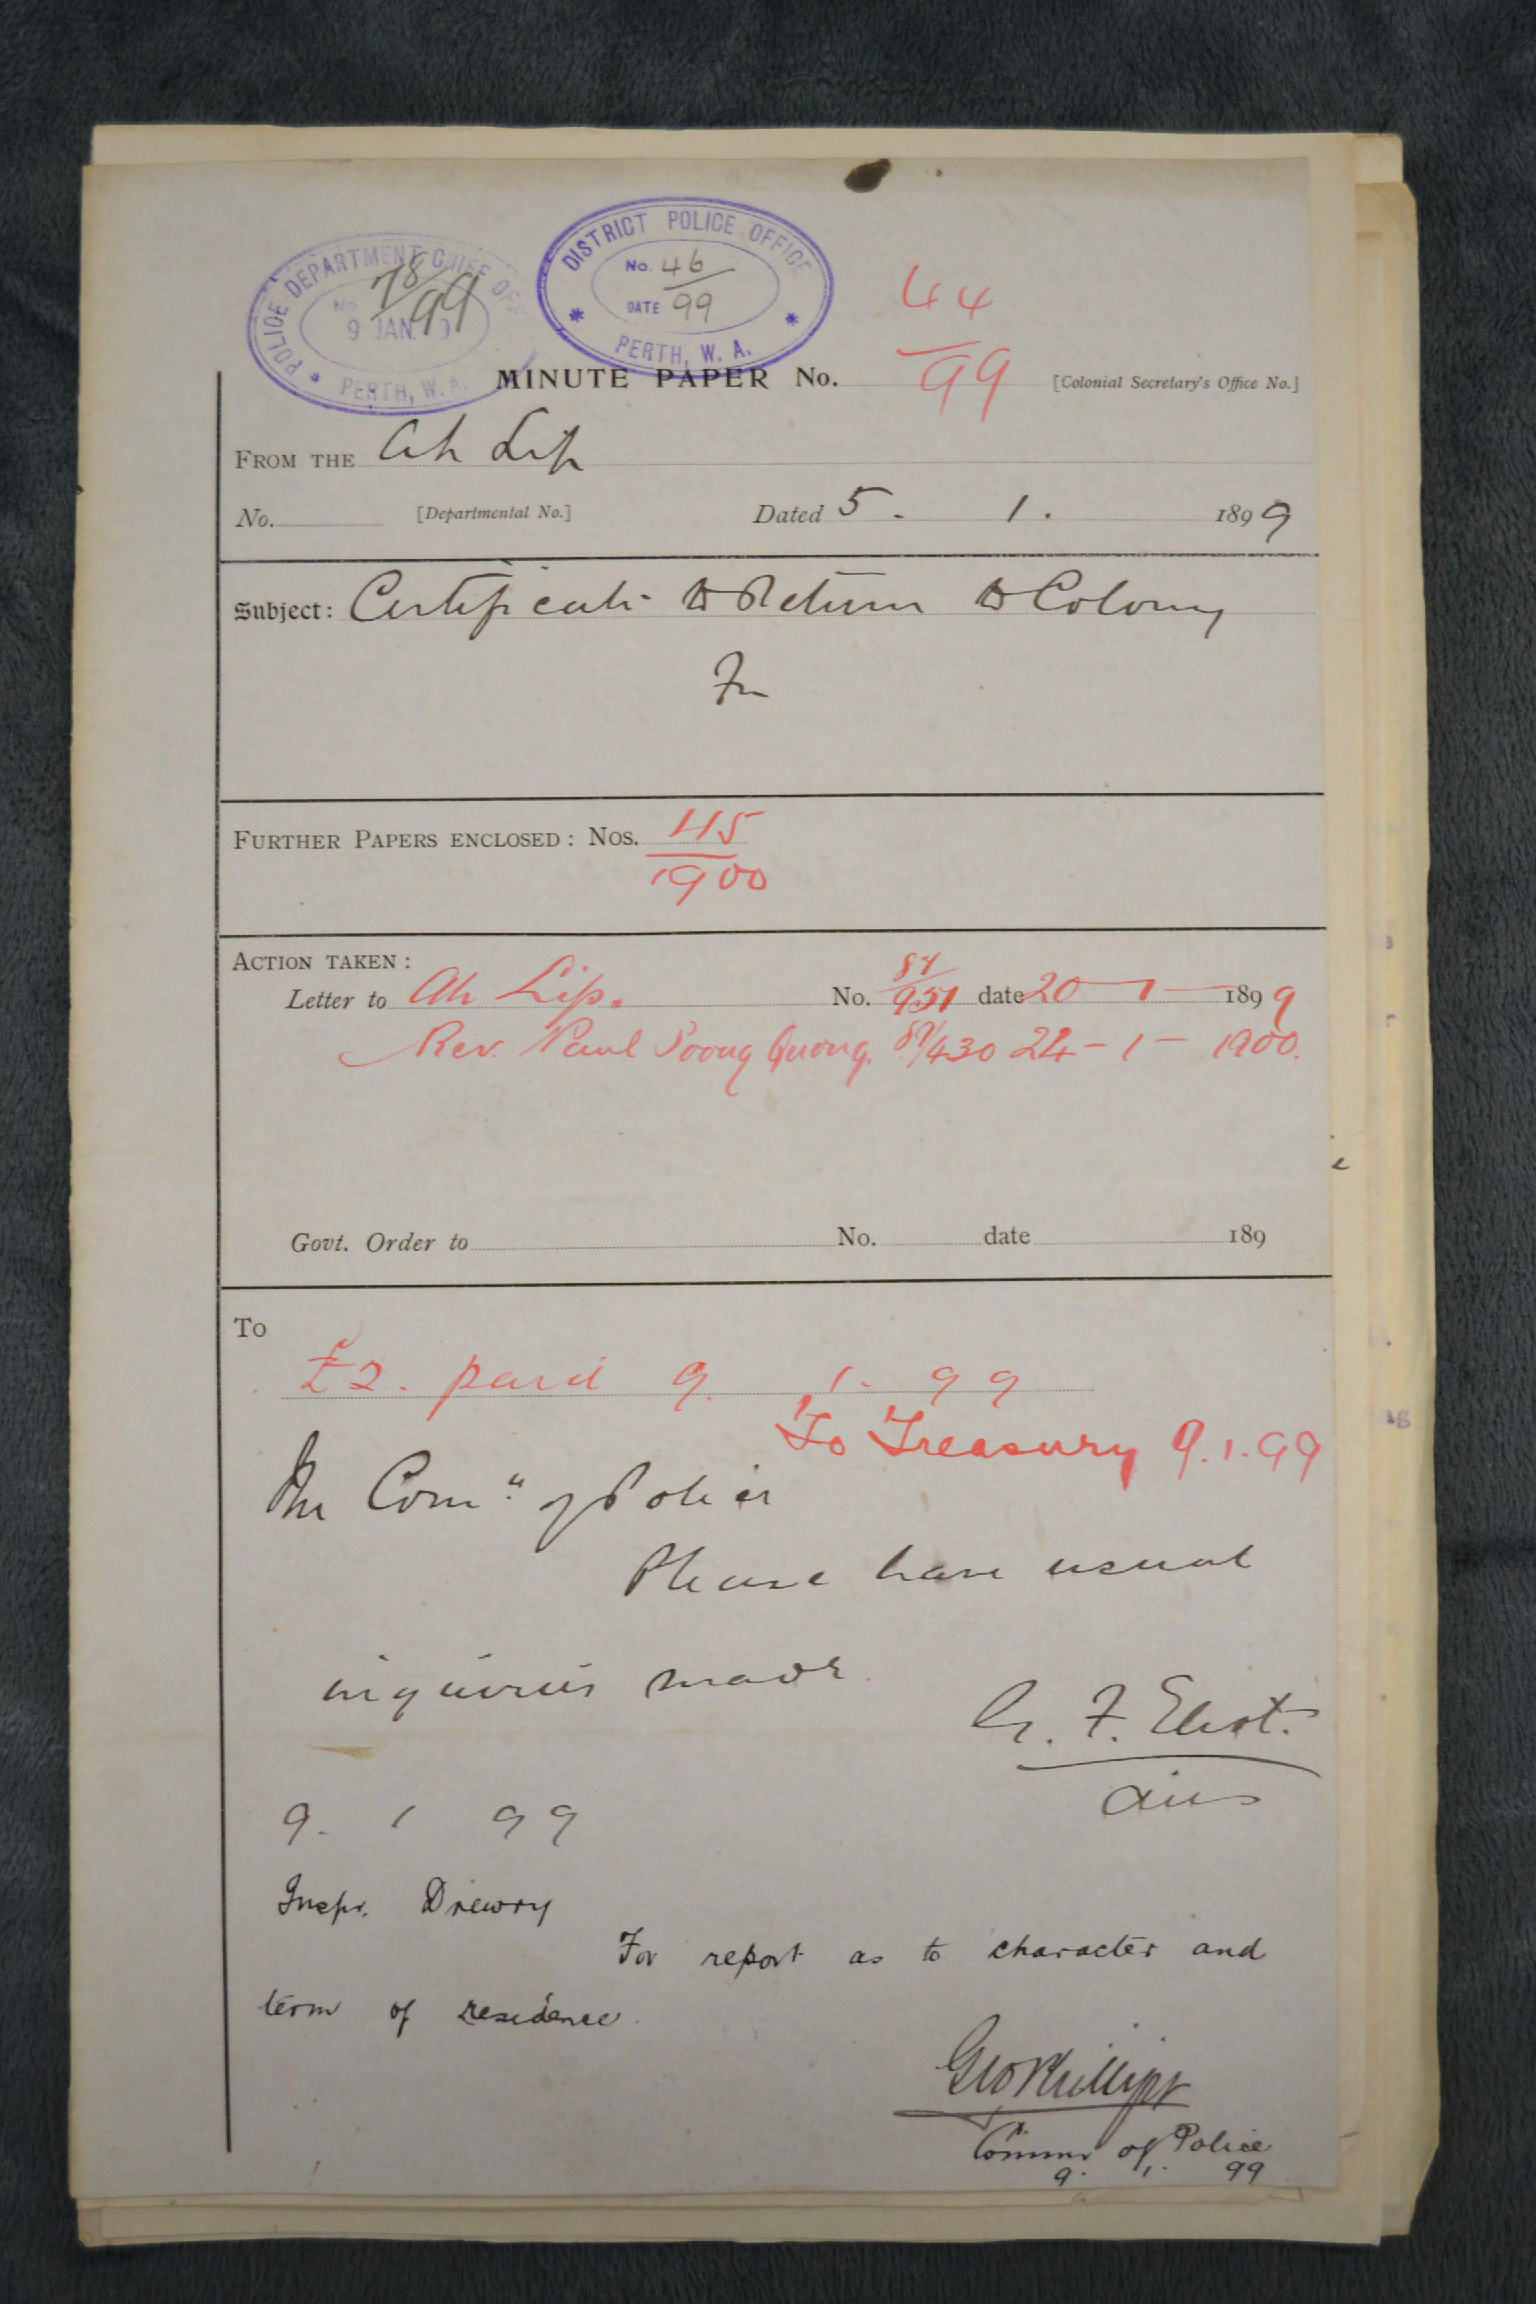 POLICE DEPARTMENT CHIEF OFF
No. 78/99
9 JAN. 9
PERTH, W. A.
DISTRICT POLICE OFFICE
No. 46
DATE 99
PERTH, W. A.
44
99
MINUTE PAPER No. [Colonial Secretary's Office No.]
FROM THE Ah Lip
No. [Departmental No.] Dated 5. 1. 1899
Subject: Certificate to Return to Colony
For
FURTHER PAPERS ENCLOSED: Nos. 115
1900
ACTION TAKEN:
Letter to Ah Lip. No. 87/951 date 20-1-1899
Rev. Paul Soong Quong. 89/430 24-1-1900.
Govt. Order to No. date 189
To
£2. paid 9. 1. 99
To Treasury 9.1.99
The Comr of Police
Please have usual
inquiries made.
G. F. Eliot.
9. 1 99
Inspr. Drewry
For report as to character and
term of residence.
Geo Phillips
Commr of Police
9. 1. 99